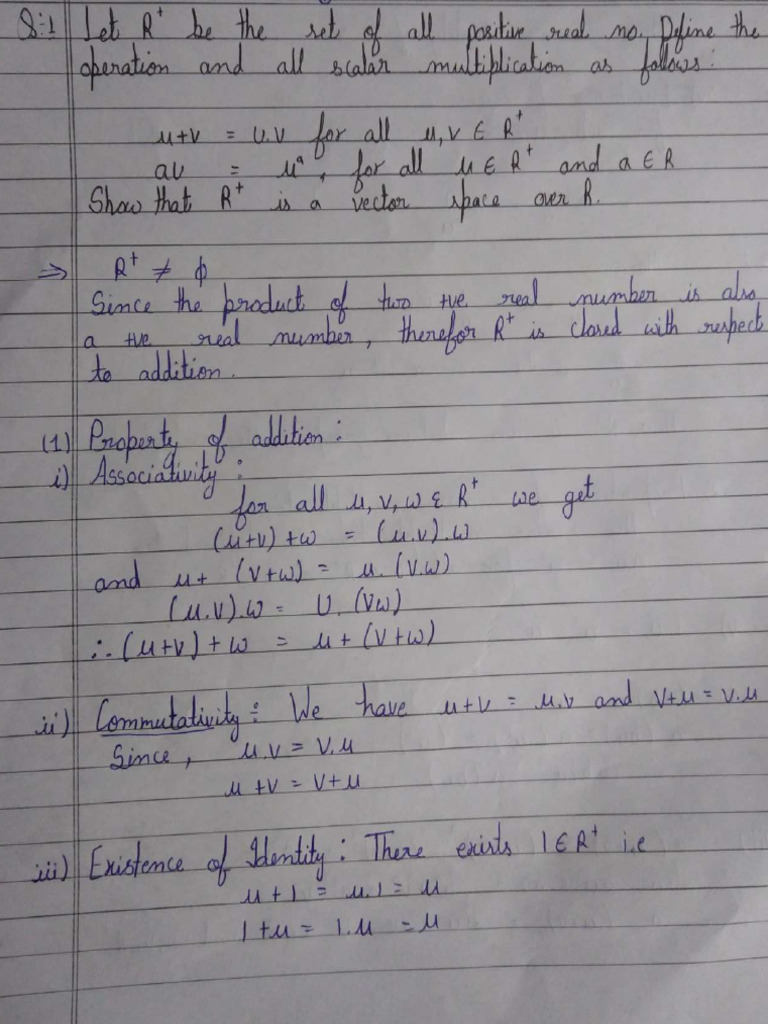 Q:1 Let R⁺ be the set of all positive real no. Define the
operation and all scalar multiplication as follows:
u+v = u.v for all u,v ∈ R⁺
au = uᵃ, for all u ∈ R⁺ and a ∈ R
Show that R⁺ is a vector space over R.
⇒ R⁺ ≠ ϕ
Since the product of two +ve real number is also
a +ve real number, therefor R⁺ is closed with respect
to addition.
(1) Property of addition :
i) Associativity :
for all u, v, w ε R⁺ we get
(u+v)+w = (u.v).w
and u+ (v+w) = u.(v.w)
(u.v).w = U.(vw)
∴ (u+v)+w = u+(v+w)
ii) Commutativity : We have u+v = u.v and v+u = v.u
Since, u.v = v.u
u+v = v+u
iii) Existence of Identity : There exists 1 ∈ R⁺ i.e
u+1 = u.1 = u
1+u = 1.u = u